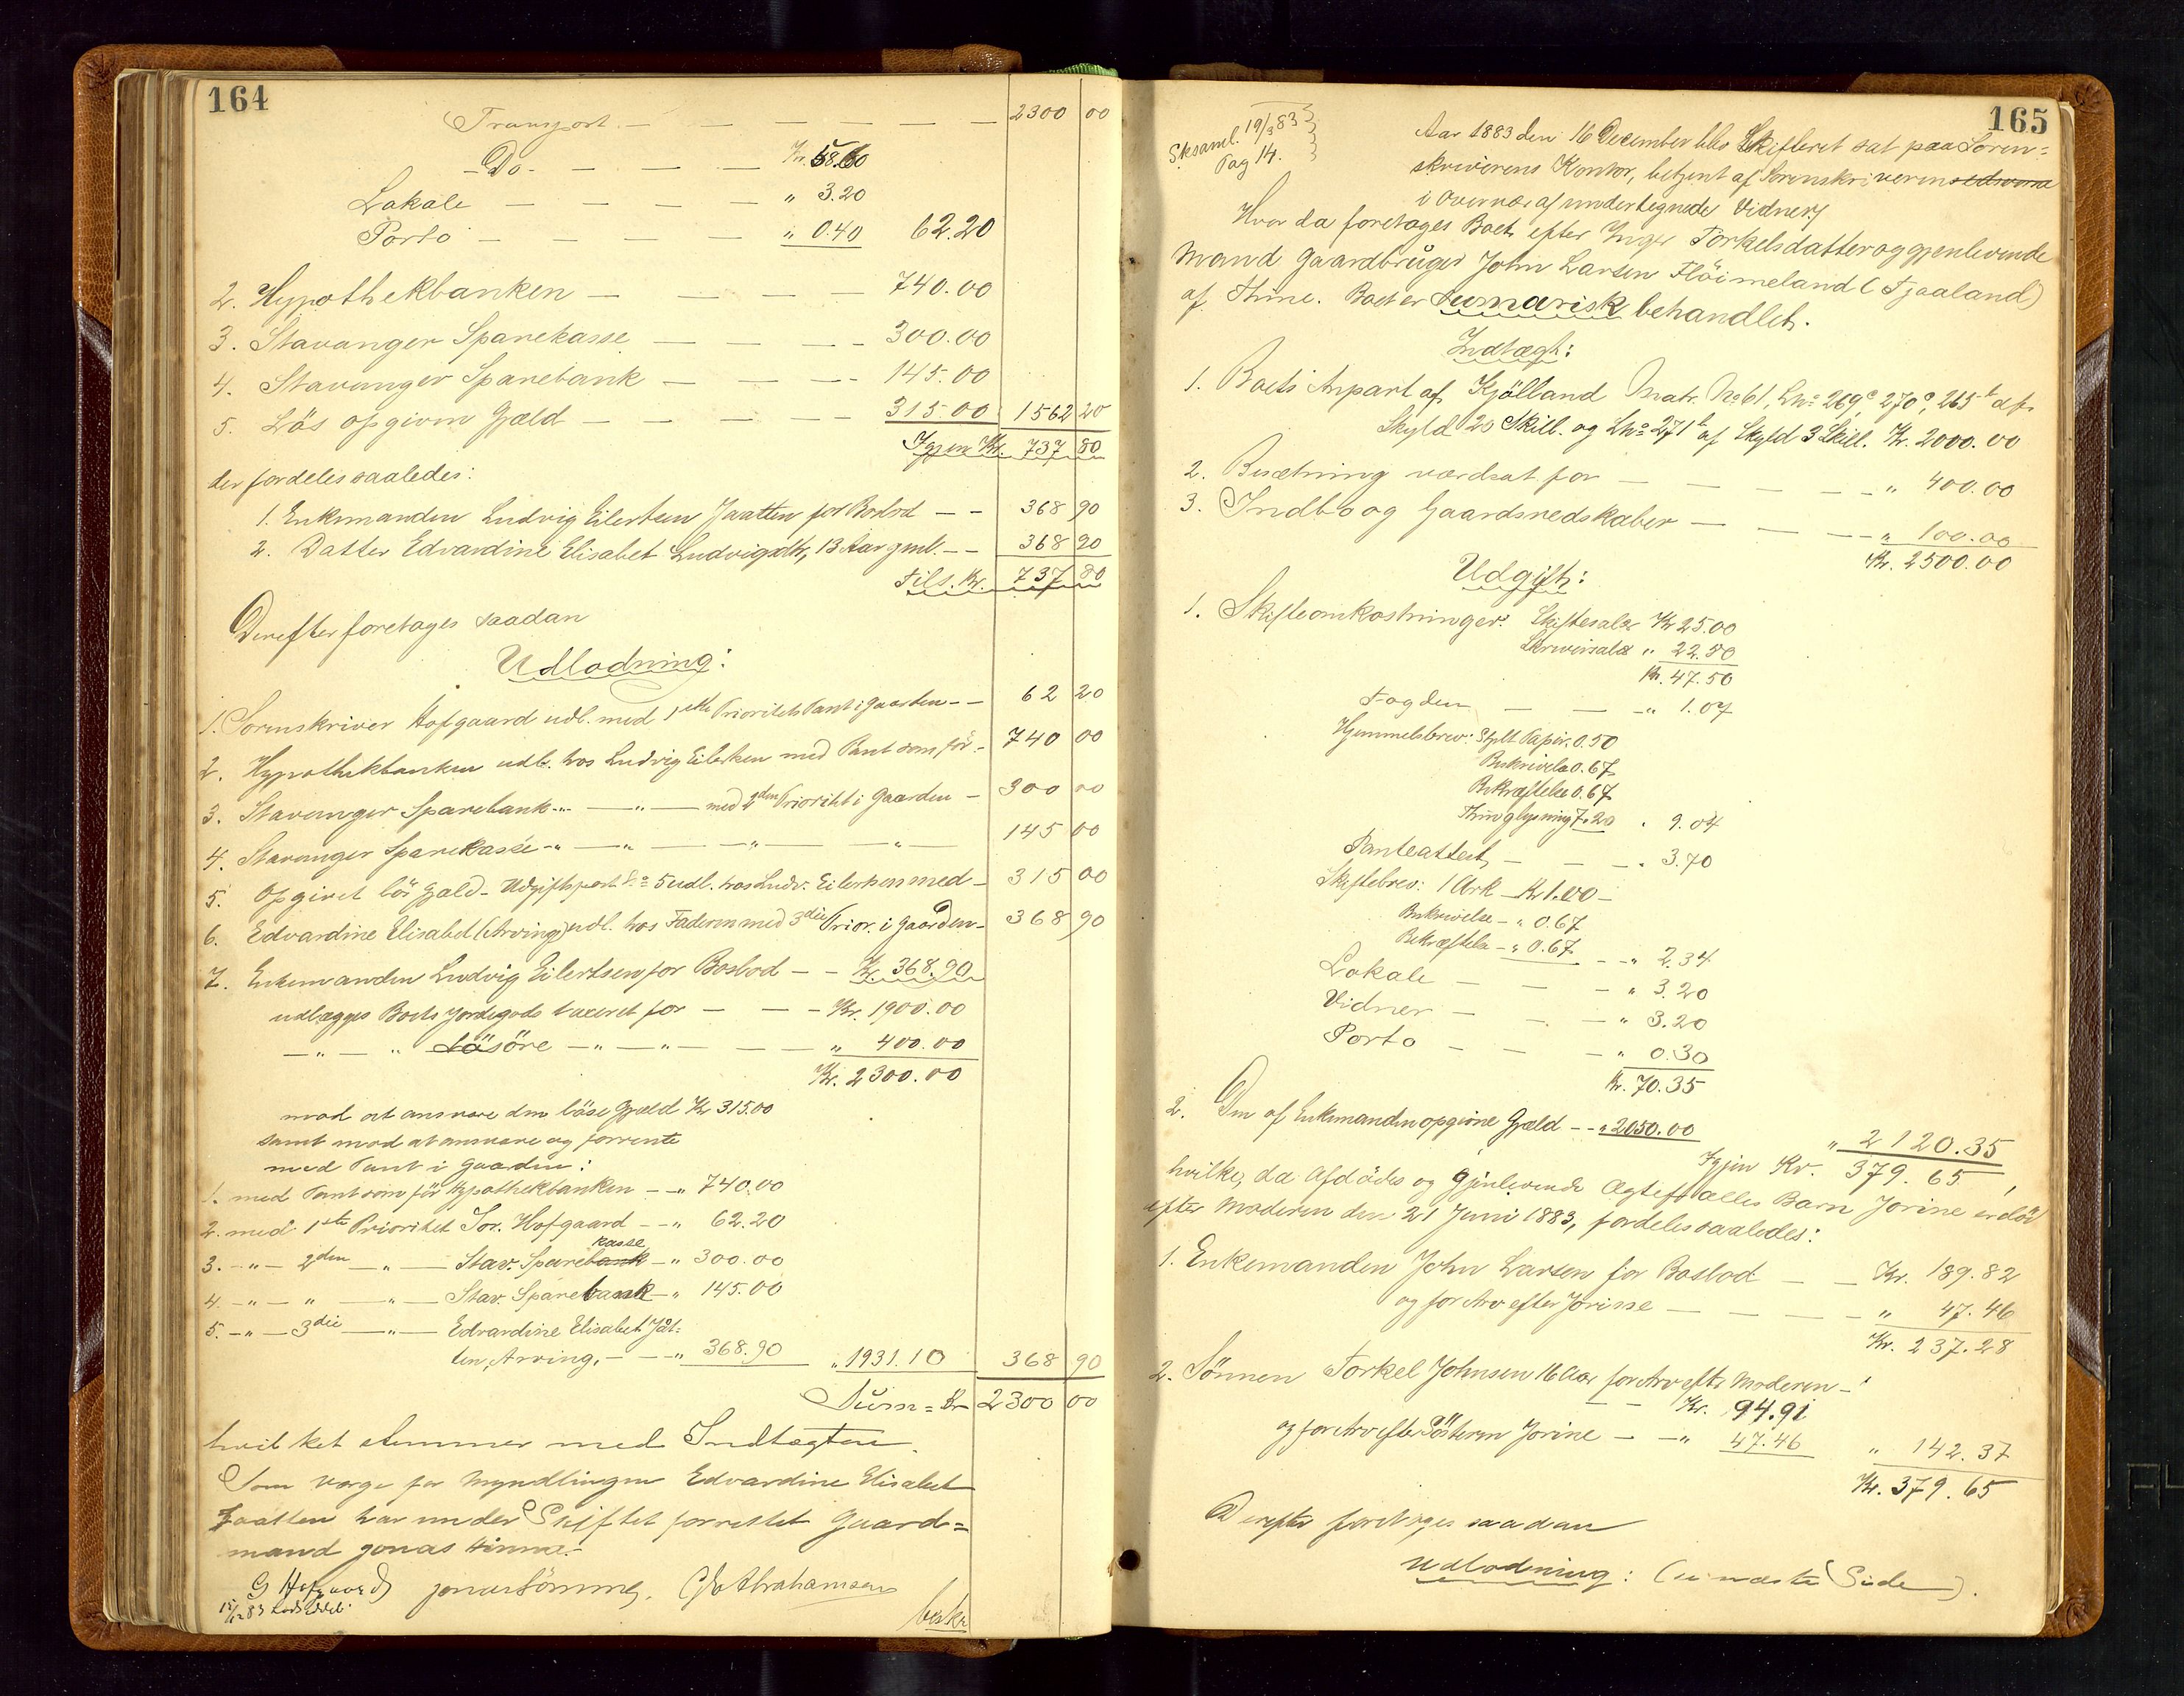 164
Transport. — — — — — 2300 00
Do. — — — Kr. 58.60
Lokale — — — — " 3.20
Porto — — — — " 0.40 62.20
2. Hypothekbanken — — — — 740.00
3. Stavanger Sparekasse — — — 300.00
4. Stavanger Sparebank — — — 145.00
5. Lös opgiven Gjæld — — — — 315.00 1562 20
Igjen Kr. 737 80
der fordeles saaledes:
1. Enkemanden Ludvig Eilertsen Jaatten for Boslod — — 368 90
2. Datter Edvardine Elisabet Ludvigsdtr, 13 Aar gml. — — 368 90
Tils. Kr. 737 80
Derefter foretages saadan
Udlodning:
1. Sorenskriver Hofgaard udl. med 1ste Prioritets Pant i Gaarden — — 62 20
2. Hypothekbanken udl. hos Ludvig Eilertsen med Pant som för — 740 00
3. Stavanger Sparebank — " — " — med 2den Prioritet i Gaarden — 300 00
4. Stavanger Sparekasse — " — " — " — " 145 00
5. Opgivet lös Gjæld — Udgiftspost No 5 udl. hos Ludv. Eilertsen med — 315 00
6. Edvardine Elisabet (Arving) udl. hos Faderen med 3die Prior. i Gaarden — 368 90
7. Enkemanden Ludvig Eilertsen for Boslod — — Kr. 368.90
udlægges Boets Jordegods taxeret for — — — Kr. 1900.00
— " — " Lösöre — " — " — — " 400.00
Kr. 2300.00
mod at ansvare den löse Gjæld Kr 315.00
samt mod at ansvare og forrente
med Pant i Gaarden:
1. med Pant som för Hypothekbanken — — " 740.00
2. med 1ste Prioritet Sor. Hofgaard — — " 62.20
kasse
3. — " — 2den — " — Stav. Sparebank — " 300.00
4. — " — " — " — Stav. Sparebank — " 145.00
5. — " — 3die — " — Edvardine Elisabet Jåt-
ten, Arving, — — " 368.90 " 1931.10 368 90
Sum = Kr 2300 00
hvilket stemmer med Indtægten.
Som Værge for Myndlingen Edvardine Elisabet
Jaatten har under Skiftet forrettet Gaard=
mand Jonas Hinna.
G Hofgaard Jonas Abrahamsen
15/12 83
beskr
165
Sksaml. 19/3 83
Pag 14.
Aar 1883 den 16 December blev Skifteret sat paa Soren=
skriverens Kontor, betjent af Sorenskriveren
i Overvær af undertegnede Vidner
Hvor da foretages Boet efter Inger Torkelsdatter og gjenlevende
Mand Gaardbruger John Larsen Flöimeland (Tjaaland)
af Thime. Boet er sumarisk behandlet.
Indtægt:
1. Boets Anpart af Kjölland Matr. No 61, Lno 269c, 270c, 265b af
Skyld 20 Skill. og Lno 271b af Skyld 3 Skill. Kr. 2000.00
2. Besætning værdsat for — — — — — " 400.00
3. Indbo og Gaardsredskaber — — — " 100.00
Kr. 2500.00
Udgift:
1. Skifteomkostninger: Skiftesalær Kr 25.00
Skriversalær " 22.50
Kr. 47.50
Fogden — — — " 1.07
Hjemmelsbrev: Stplt Papir 0.50
Beskrivelse 0.67
Bekræftelse 0.67
Thinglysning 7.20 " 9.04
Panteattest — — — " 3.70
Skiftebrev: 1 Ark — Kr 1.00 —
Beskrivelse — " 0.67
Bekræftelse — " 0.67 — " 2.34
Lokale — — — " 3.20
Vidner — — — " 3.20
Porto — — — " 0.30
Kr. 70.35
2. Den af Enkemanden opgivne Gjæld — — " 2050.00
" 2120.35
Igjen Kr. 379.65,
hvilke, da Afdödes og gjenlevende Ægtefælles Barn Jorine er död
efter Moderen den 21 Juni 1883, fordeles saaledes:
1. Enkemanden John Larsen for Boslod — — Kr. 189.82
og for Arv efter Jorine — — — — " 47.46
Kr. 237.28
2. Sönnen Torkel Johnsen 16 Aar for Arv efter Moderen —
— — Kr. 94.91
og for Arv efter Sösteren Jorine — — " 47.46 " 142.37
Kr. 379.65
Derefter foretages saadan
Udlodning: (se næste Side).